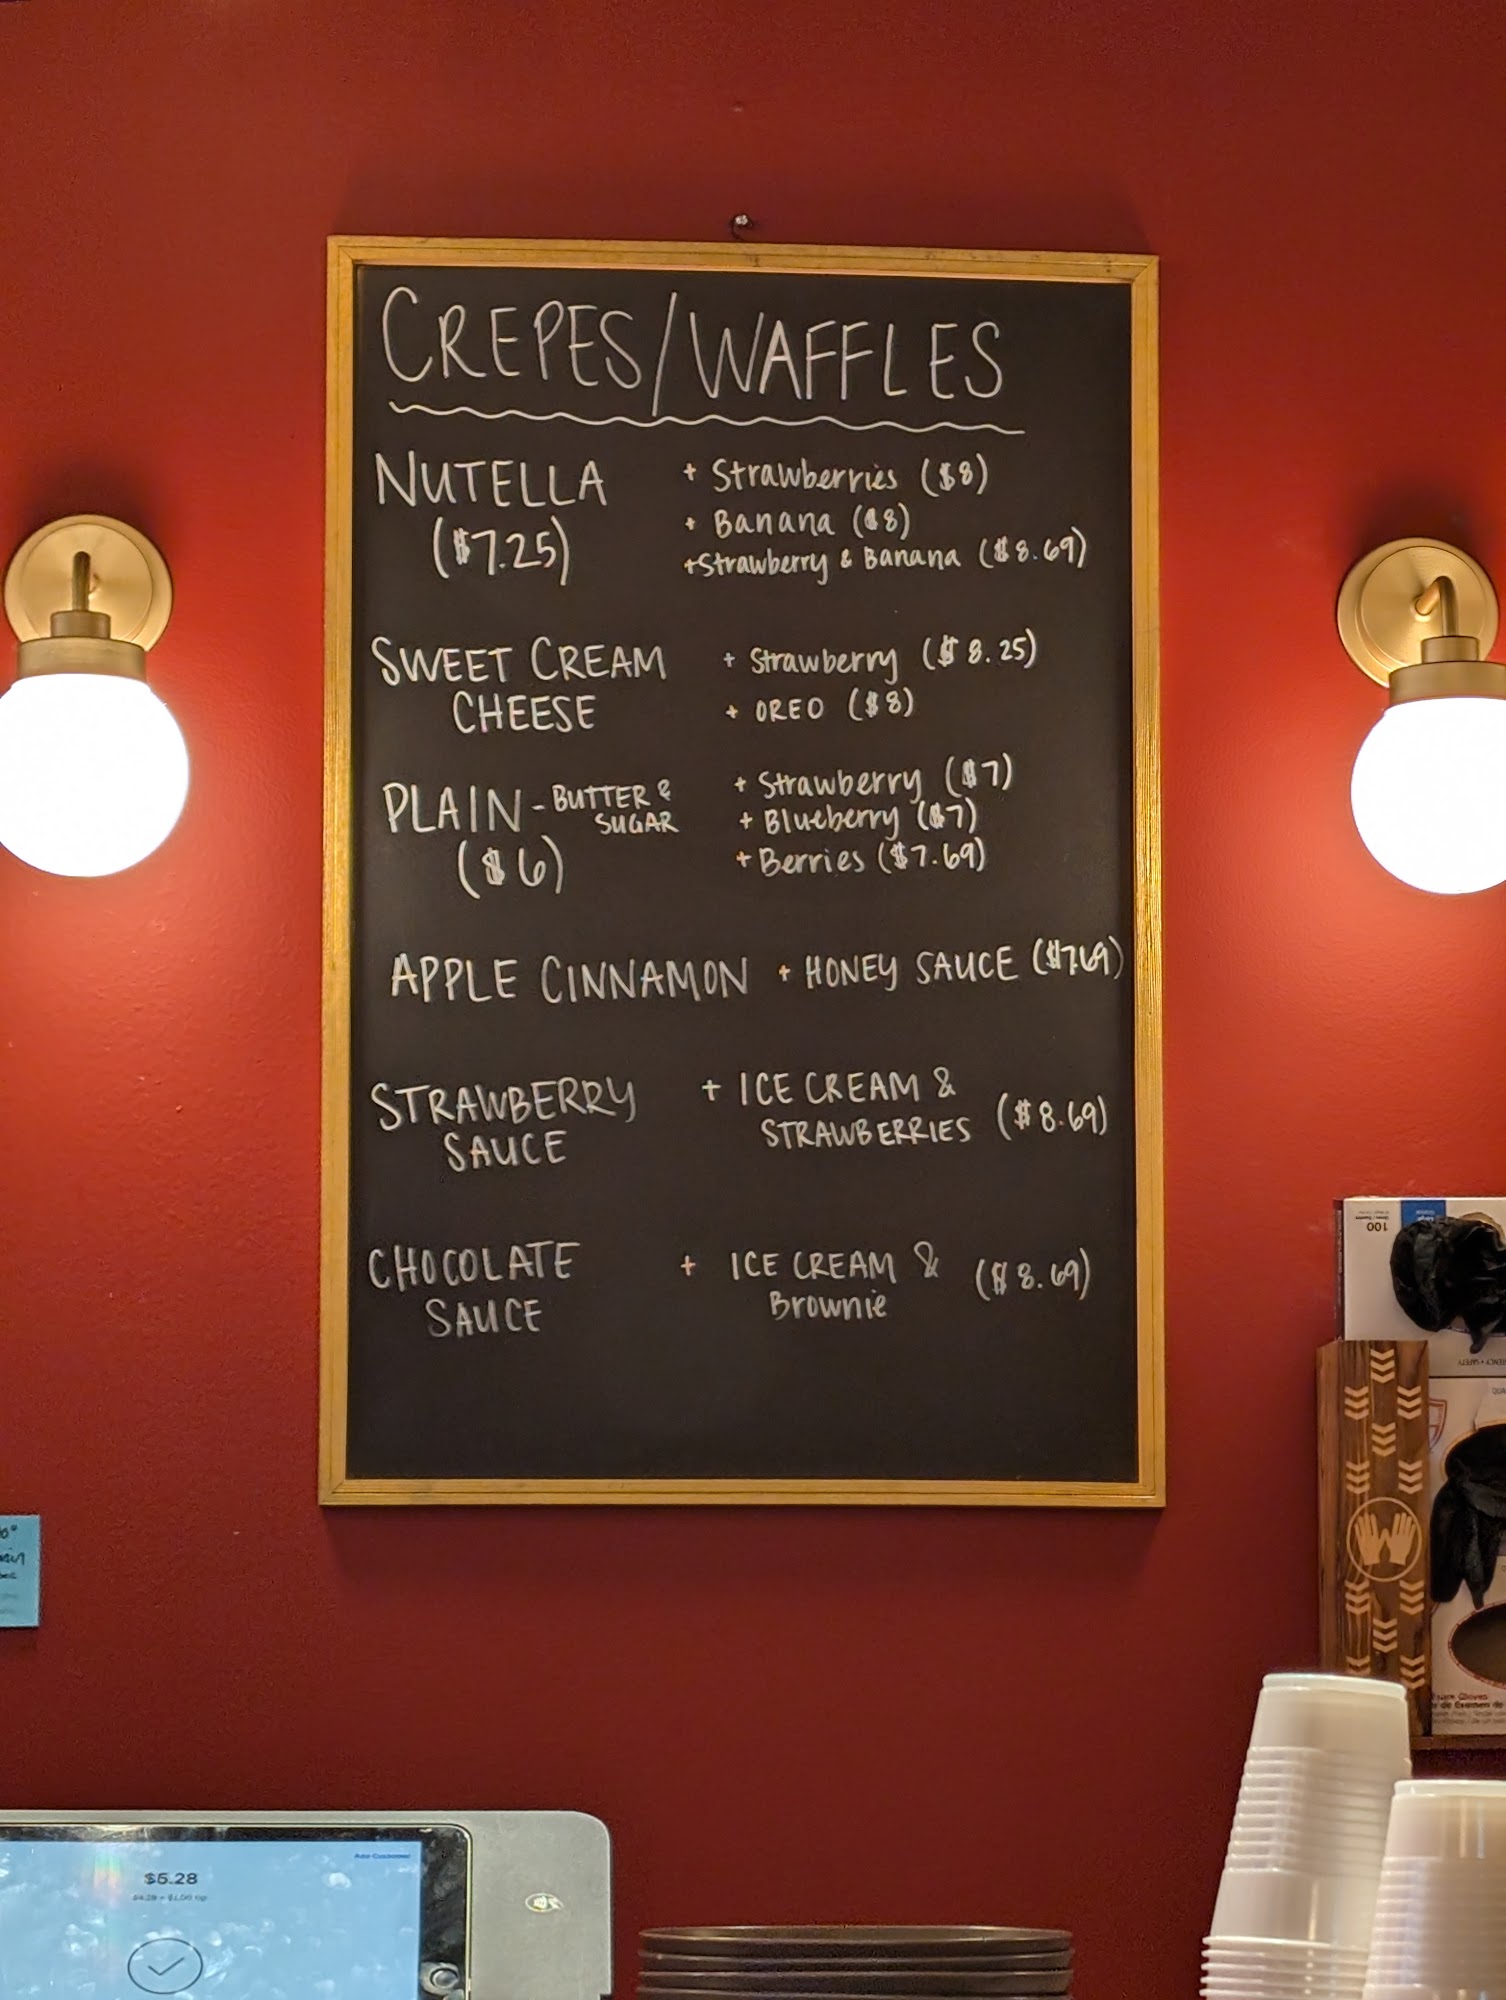 CREPES/WAFFLES
NUTELLA
($7.25)
+ Strawberries ($8)
+ Banana ($8)
+Strawberry & Banana ($8.69)
SWEET CREAM
CHEESE
+ Strawberry ($8.25)
+ OREO ($8)
PLAIN - BUTTER &
SUGAR
($6)
+ Strawberry ($7)
+ Blueberry ($7)
+ Berries ($7.69)
APPLE CINNAMON + HONEY SAUCE ($7.69)
STRAWBERRY
SAUCE
+ ICE CREAM &
STRAWBERRIES ($8.69)
CHOCOLATE
SAUCE
+ ICE CREAM &
Brownie ($8.69)
100
Add Customer
$5.28
$4.28 + $1.00 tip